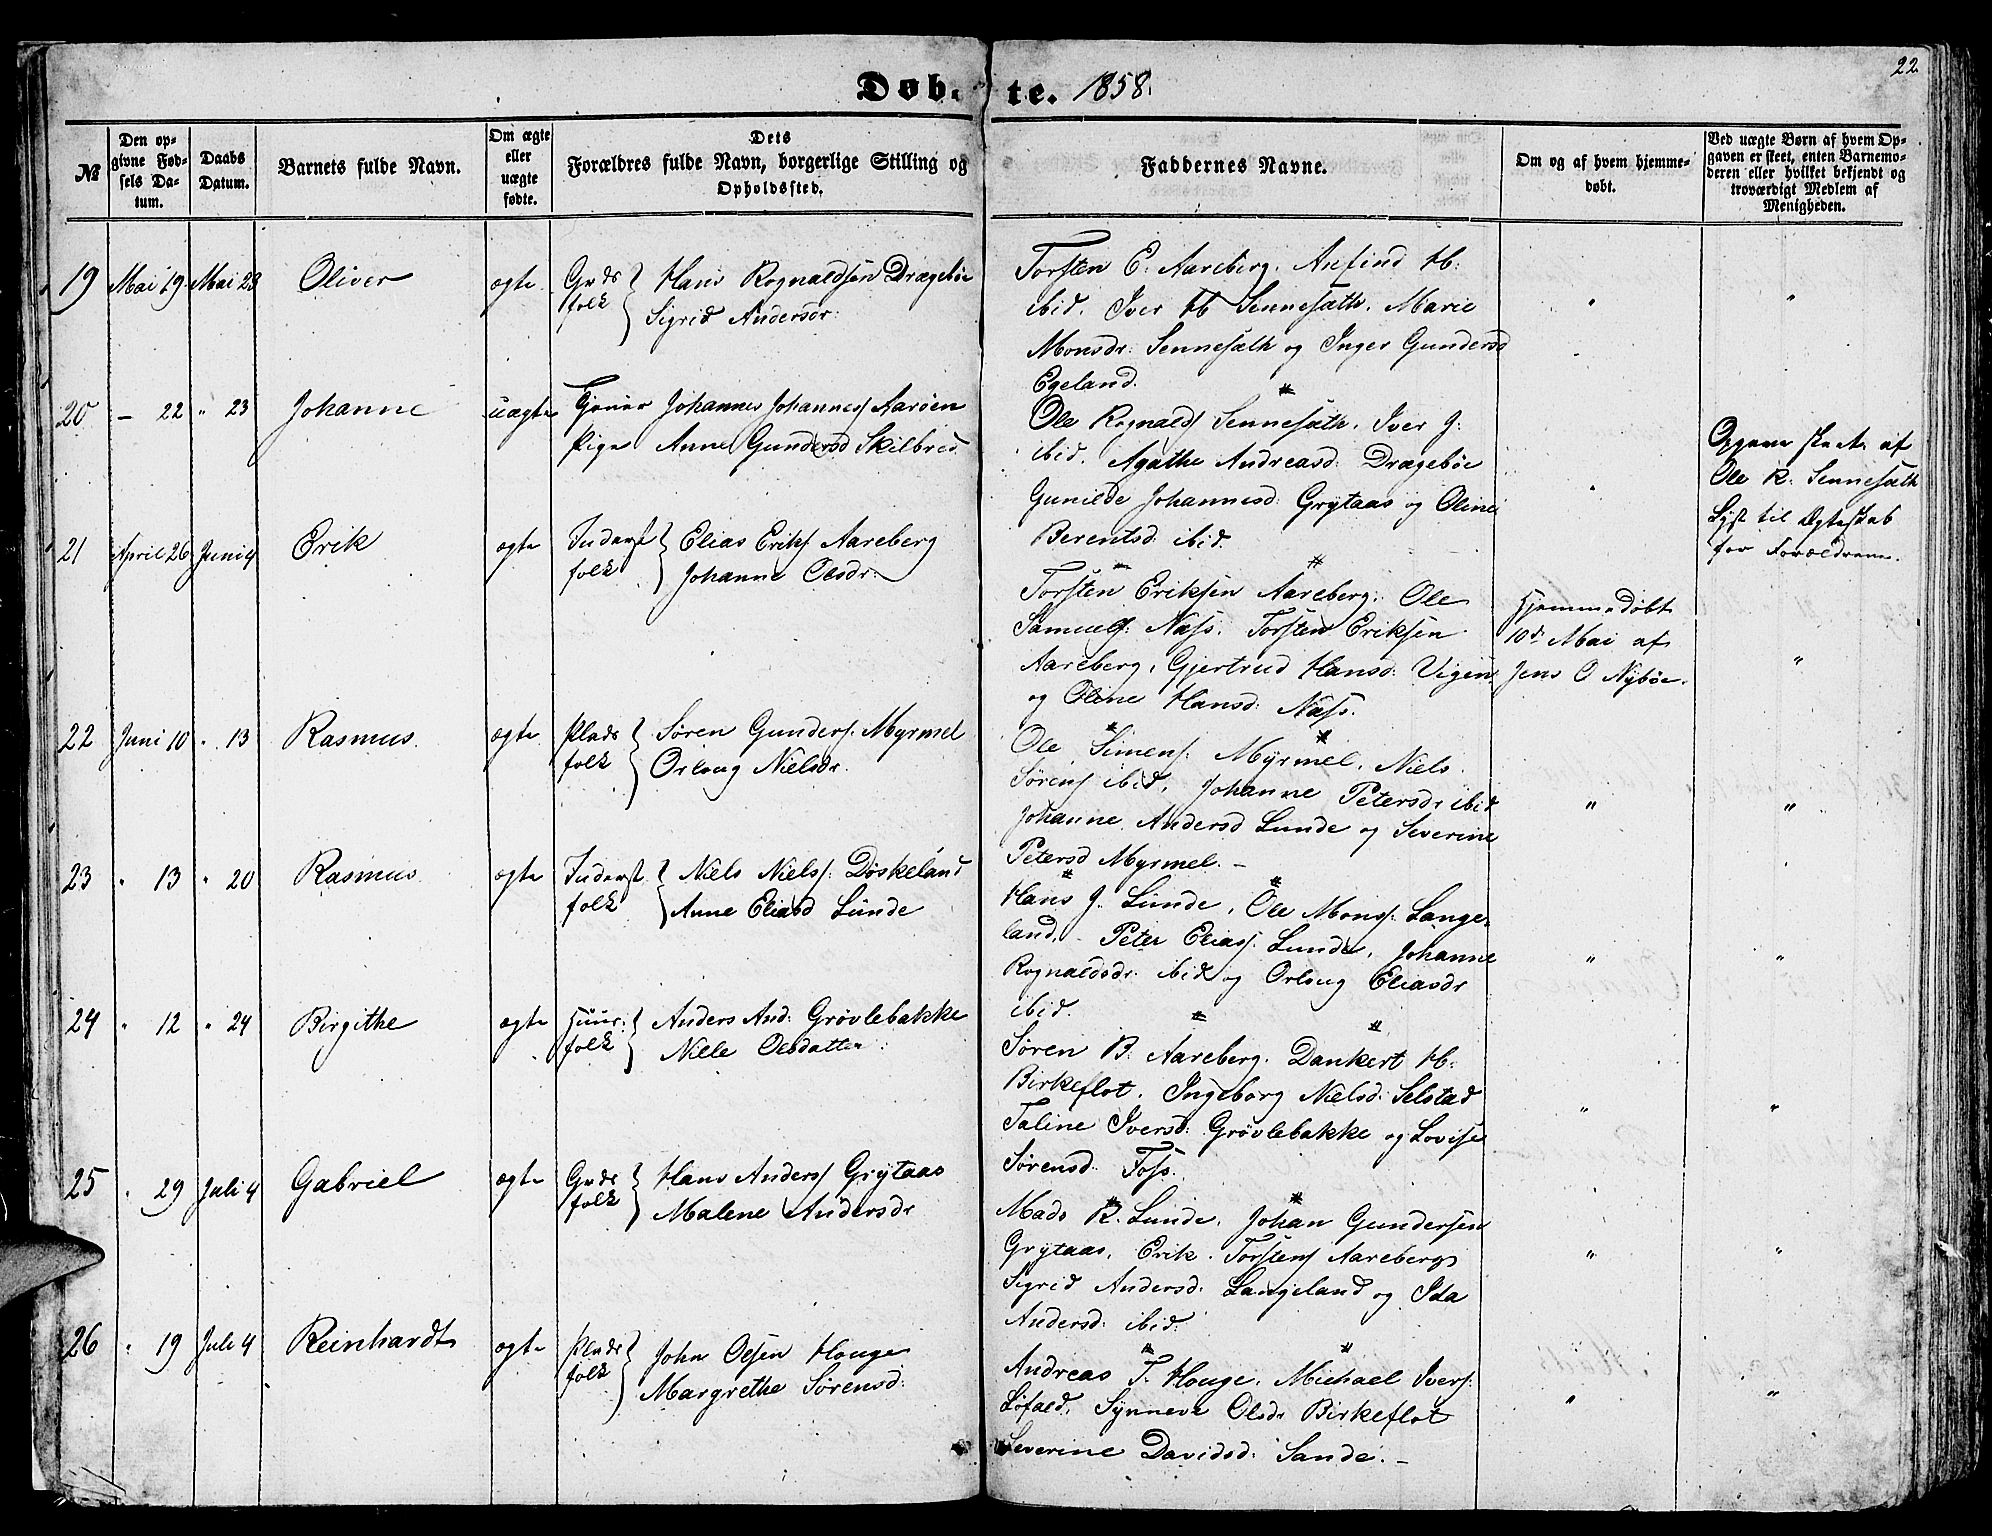 22
Døbte. 1858.
№
Den opgivne Fødsels Datum.
Daabs Datum.
Barnets fulde Navn.
Om ægte eller uægte fødte.
Dets Forældres fulde Navn, borgerlige Stilling og Opholdssted.
Faddernes Navne.
Om og af hvem hjemmedøbt.
Ved uægte Børn af hvem Opgaven er skeet, enten Barnemoderen eller hvilket bekjendt og troværdigt Medlem af Menigheden.
19 Mai 19 Mai 23 Oliver ægte Grds folk { Hans Rognaldsen Dragebøe
Sigrid Andersdr:
Torsten E: Aareberg. Anfind H:
ibid. Iver H Sennesæth. Marie
Monsdr: Sennesæth og Inger Gundersd
Egeland.
" "
20 – 22 " 23 Johanne uægte Tjener Johannes Johannesſ Aarøen
Pige Anne Gundersd Skilbred
Ole Rognaldſ Sennesæth. Iver J:
ibid. Agathe Andreasd: Dragebøe
Gunilde Johannesd: Grytaas og Oline
Berentsd: ibid.
"
Opgave skeet af
Ole R: Sennesæth
Lyst til Ægteskab
for Forældrene.
21 April 26 Juni 4 Erik ægte Inderst folk { Elias Eriks Aareberg
Johanne Olsdr:
Torsten Eriksen Aareberg. Ole
Samuelſ: Næss. Torsten Eriksen
Aareberg, Gjertrud Hansd: Vigen
og Oline Hansd: Næss.
Hjemmedøbt
10d Mai af
Jens O Nybøe.
"
22 Juni 10 " 13 Rasmus. ægte Plads folk { Søren Gunderſ: Myrmel
Orloug Nielsdr.
Ole Simenſ: Myrmel. Niels
Sørenſ ibid. Johanne Petersdr ibid
Johanne Andersd Lunde og Severine
Petersd Myrmel. –
" "
23 " 13 " 20 Rasmus ægte Inderst folk { Niels Nielsſ: Døskeland
Anne Eliasd Lunde
Hans J. Lunde, Ole Monsſ: Lange-
land. Peter Eliasſ. Lunde, Johanne
Rognaldsdr. ibid og Orloug Eliasdr
ibid.
" "
24 " 12 " 24 Birgithe ægte Huus: folk { Anders And: Grøvlebakke
Nille Olsdatter:
Søren B: Aareberg. Dankert H:
Birkeflot. Ingeborg Nielsd: Selstad
Taline Iversd: Grøvlebakke og Lovise
Sørensd: Foss.
" "
25 " 29 Juli 4 Gabriel ægte Grds folk { Hans Andersſ Grytaas
Malene Andersdr
Mads R. Lunde. Johan Gundersen
Grytaas. Erik Torstenſ Aareberg
Sigrid Andersd: Langeland og Ida
Andersd: ibid:
" "
26 " 19 Juli 4 Reinhardt ægte Plads folk { John Olsen Houge
Margrethe Sørensd:
Andreas T. Houge. Michael Iverſ:
Løfald. Synneve Olsdr Birkeflot
Severine Davidsd: Sande. –
" "